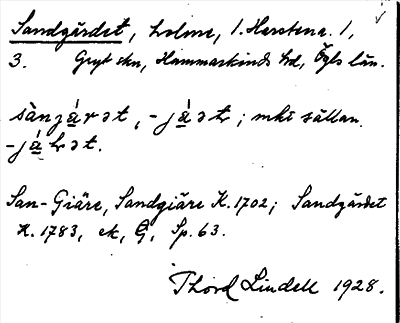 Sandgärdet, holme, 1. Harstena. 1,
3. Gryt skn, Hammarkinds hd, Ögls län.
sànjä́rət, -jä́ət; mkt sällan
-jä́ɽət.
San-Giäre, Sandgiäre K. 1702; Sandgärdet
K. 1783, ek, G, Sp. 63.
Thord Lindell 1928.